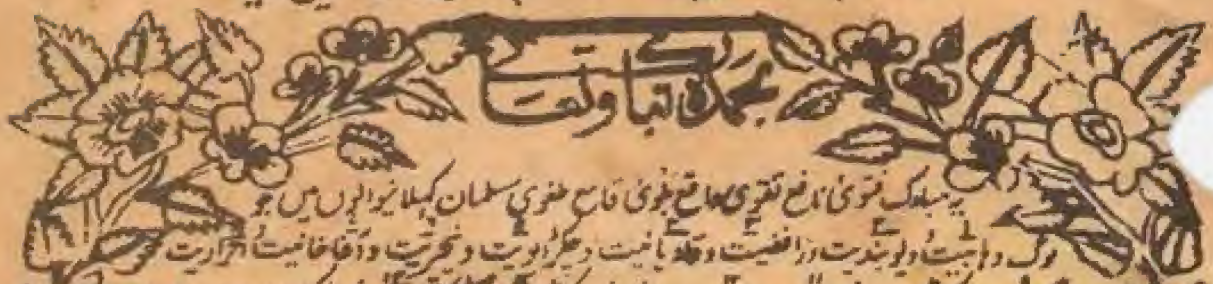 بحمدہ تبارک وتعالے
یہ مبارک فتویٰ نافع تقویٰ قامع طغویٰ مسلمان کہلانیوالوں میں جو
لوگ وہابیت و دیوبندیت و رافضیت و قادیانیت و چکڑالویت و نیچریت و آغاخانیت احراریت